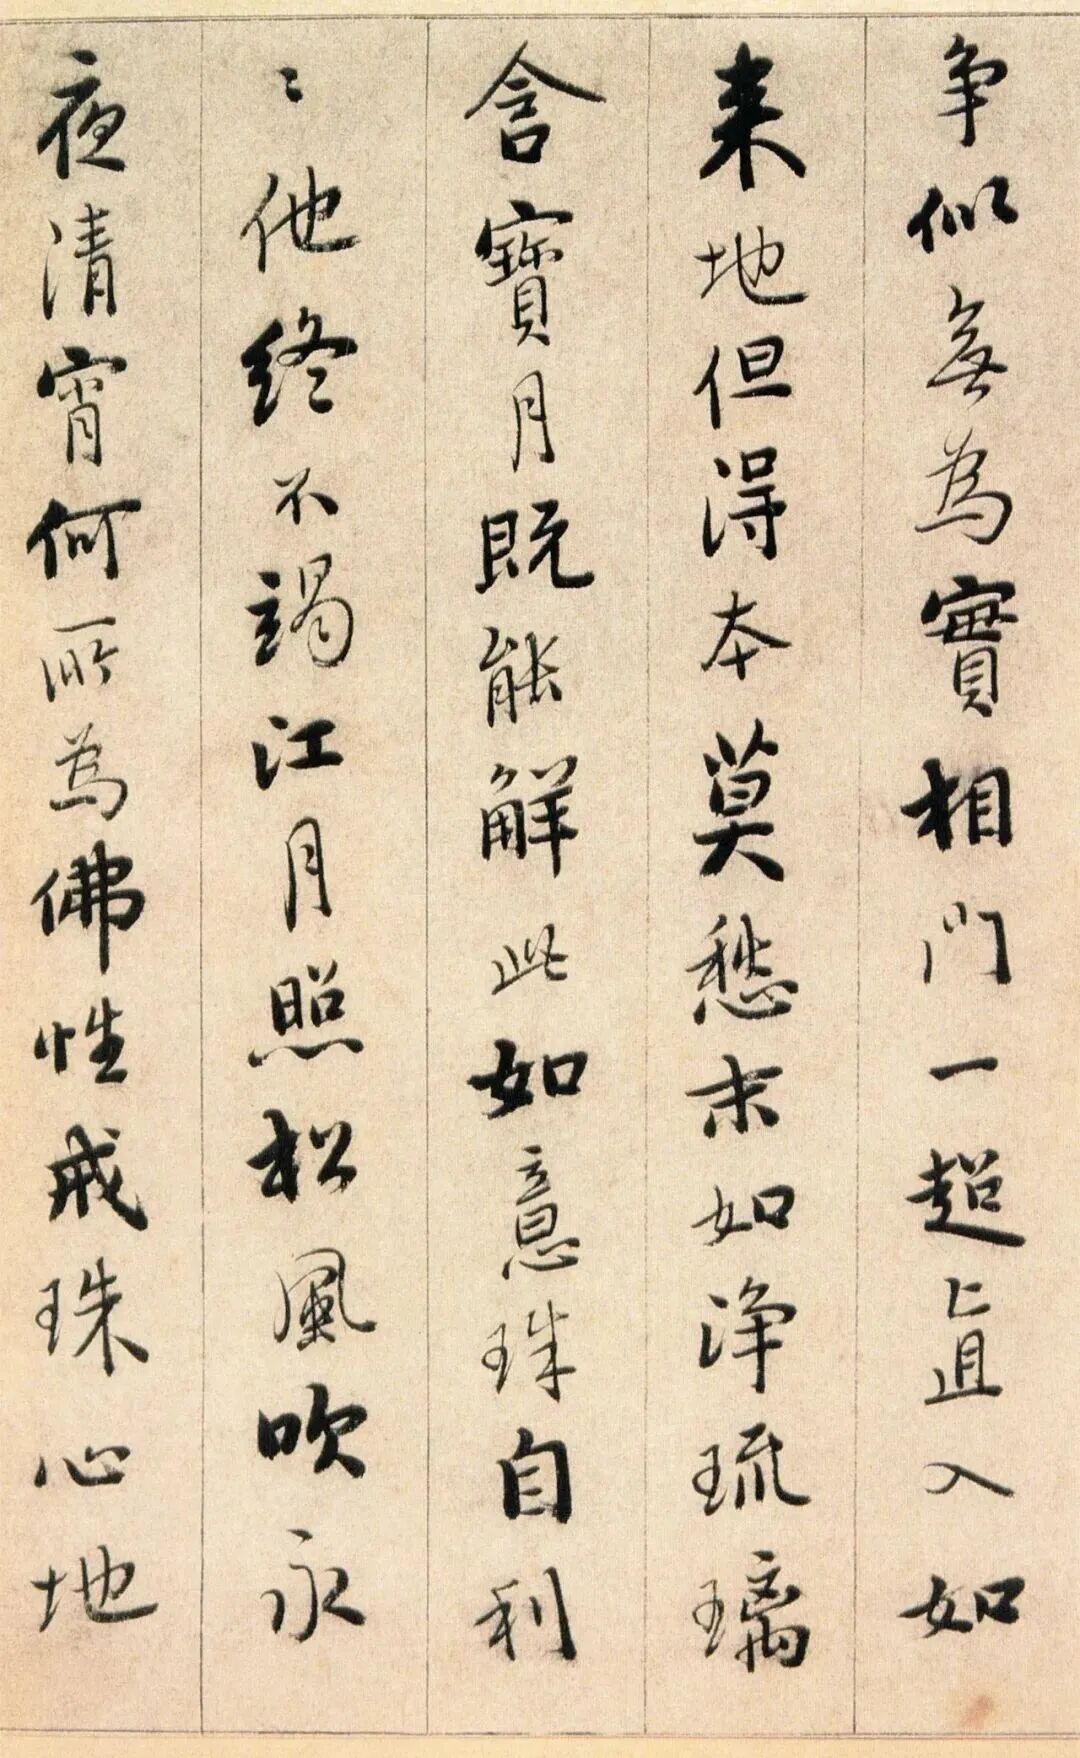 争似無為實相門一超直入如
来地但得本莫愁末如淨琉璃
含寳月既能解此如意珠自利
〻他終不竭江月照松風吹永
夜清宵何所為佛性戒珠心地